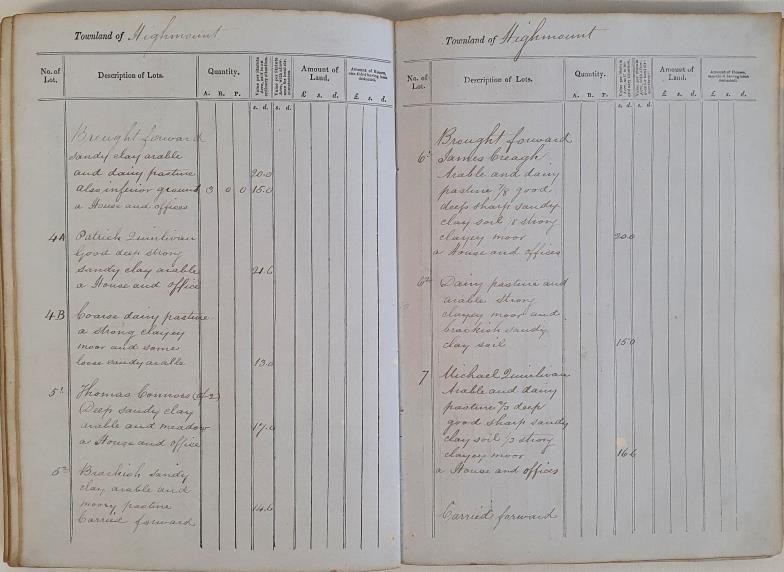 Townland of Highmount
No. of Lot.
Description of Lots.
Quantity.
A. R. P.
s. d. s. d.
Amount of Land.
£ s. d.
£ s. d.
Brought forward
Sandy clay arable
and dairy pasture 20.0
also inferior ground 3 0 0 15.0
a House and offices
4A Patrick Quinlivan
Good deep strong
sandy clay arable 21.6
a House and office
4B Coarse dairy pasture
a strong clayey
moor and some
loose sandy arable 13.0
5¹ Thomas Connors (of 2)
Deep sandy clay
arable and meadow 17.0
a House and office
5² Brackish sandy
clay arable and
moory pasture 14.6
Carried forward
Townland of Highmount
No. of Lot.
Description of Lots.
Quantity.
A. R. P.
s. d. s. d.
Amount of Land.
£ s. d.
£ s. d.
Brought forward
6¹ James Creagh
Arable and dairy
pasture 7/8 good
deep sharp sandy
clay soil 1/8 strong
clayey moor 20.0
a House and offices
6² Dairy pasture and
arable strong
clayey moor and
brackish sandy
clay soil 15.0
7 Michael Quinlivan
Arable and dairy
pasture 2/3 deep
good sharp sandy
clay soil 1/3 strong
clayey moor 16.6
a House and offices
Carried forward